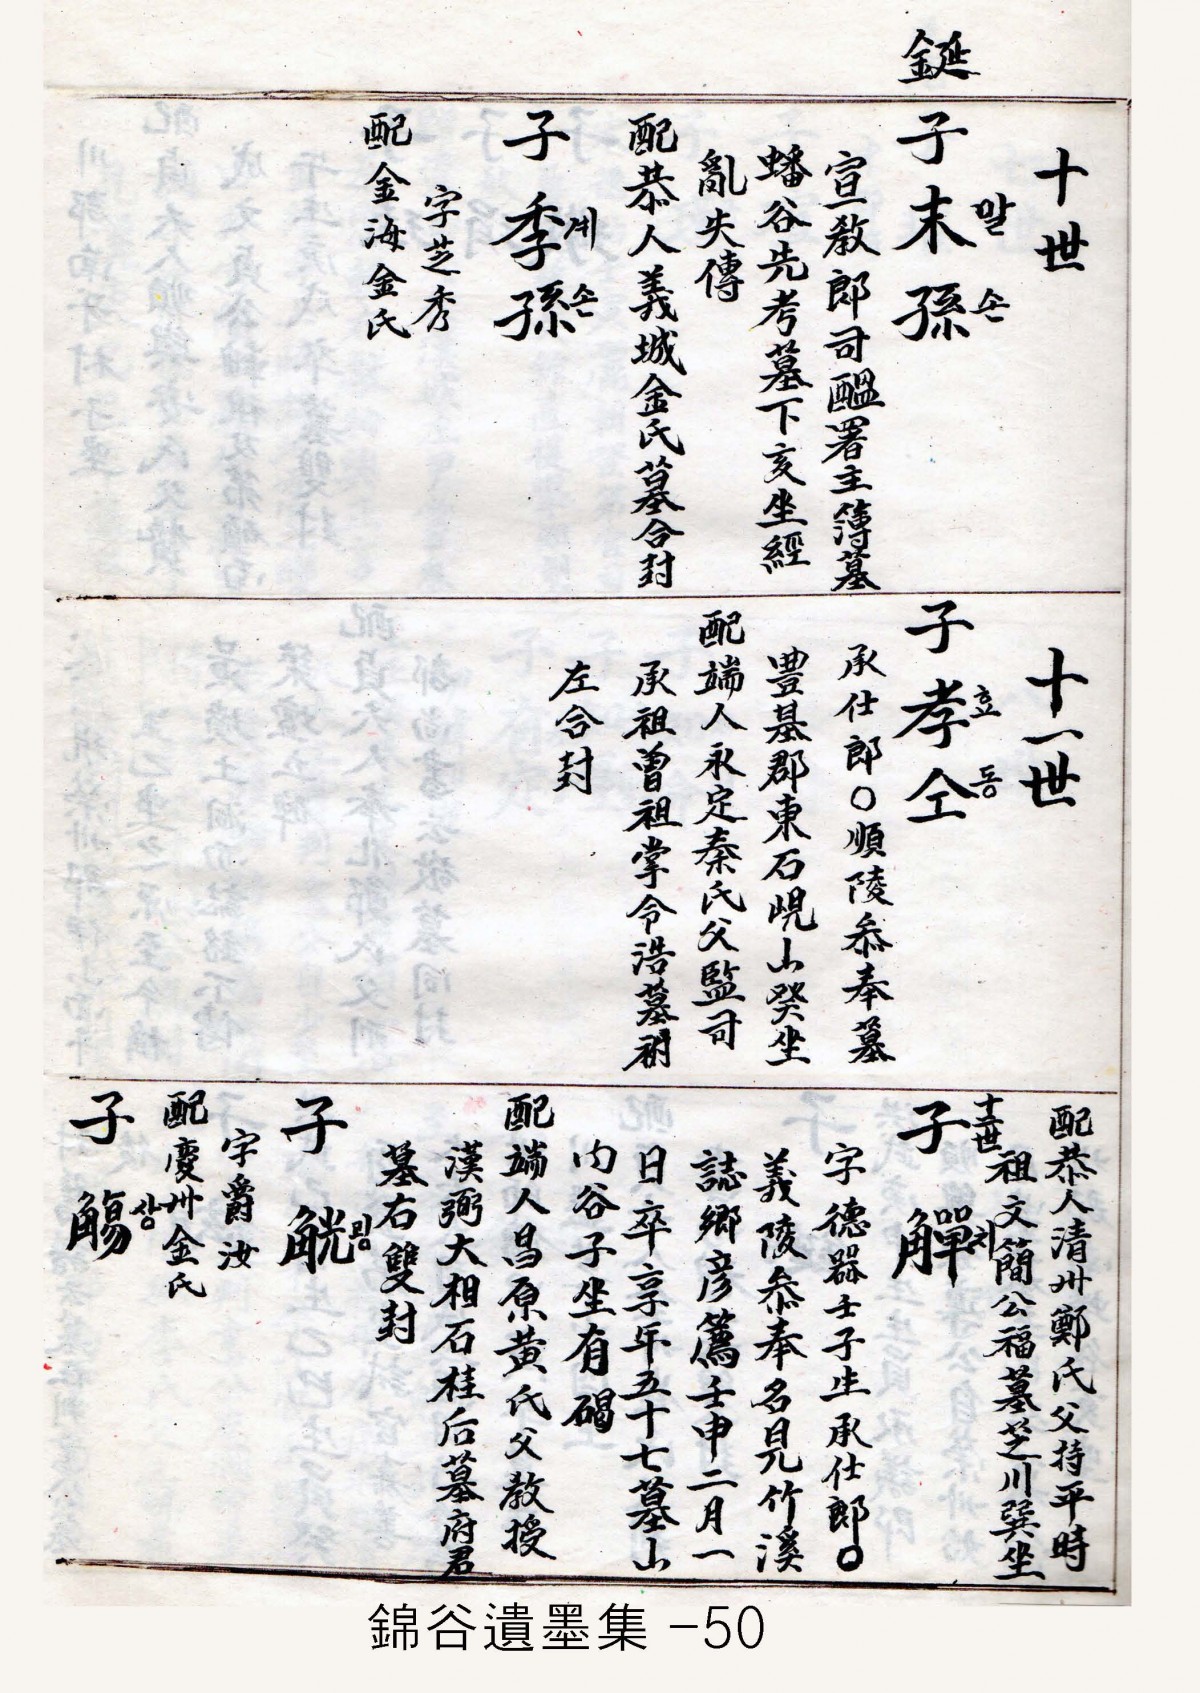 鋋
十世
子 末孫 말손
宣敎郎司醞署主簿墓
蟠谷先考墓下亥坐經
亂失傳
配恭人義城金氏墓合封
子 季孫 계손
字芝秀
配金海金氏
十一世
子 孝仝 효동
承仕郎○順陵叅奉墓
豊基郡東石峴山癸坐
配端人永定秦氏父監司
承祖曾祖掌令浩墓祔
左合封
配恭人清州鄭氏父持平時
祖文簡公福墓芝川巽坐
十二世
子 觶 치
字德器壬子生承仕郎○
義陵叅奉名見竹溪
誌鄉彦薦壬申二月一
日卒享年五十七墓山
内谷子坐有碣
配端人昌原黃氏父敎授
漢弼大相石桂后墓府君
墓右雙封
子 觥 굉
字爵汝
配慶州金氏
子 觴 상
錦谷遺墨集 -50